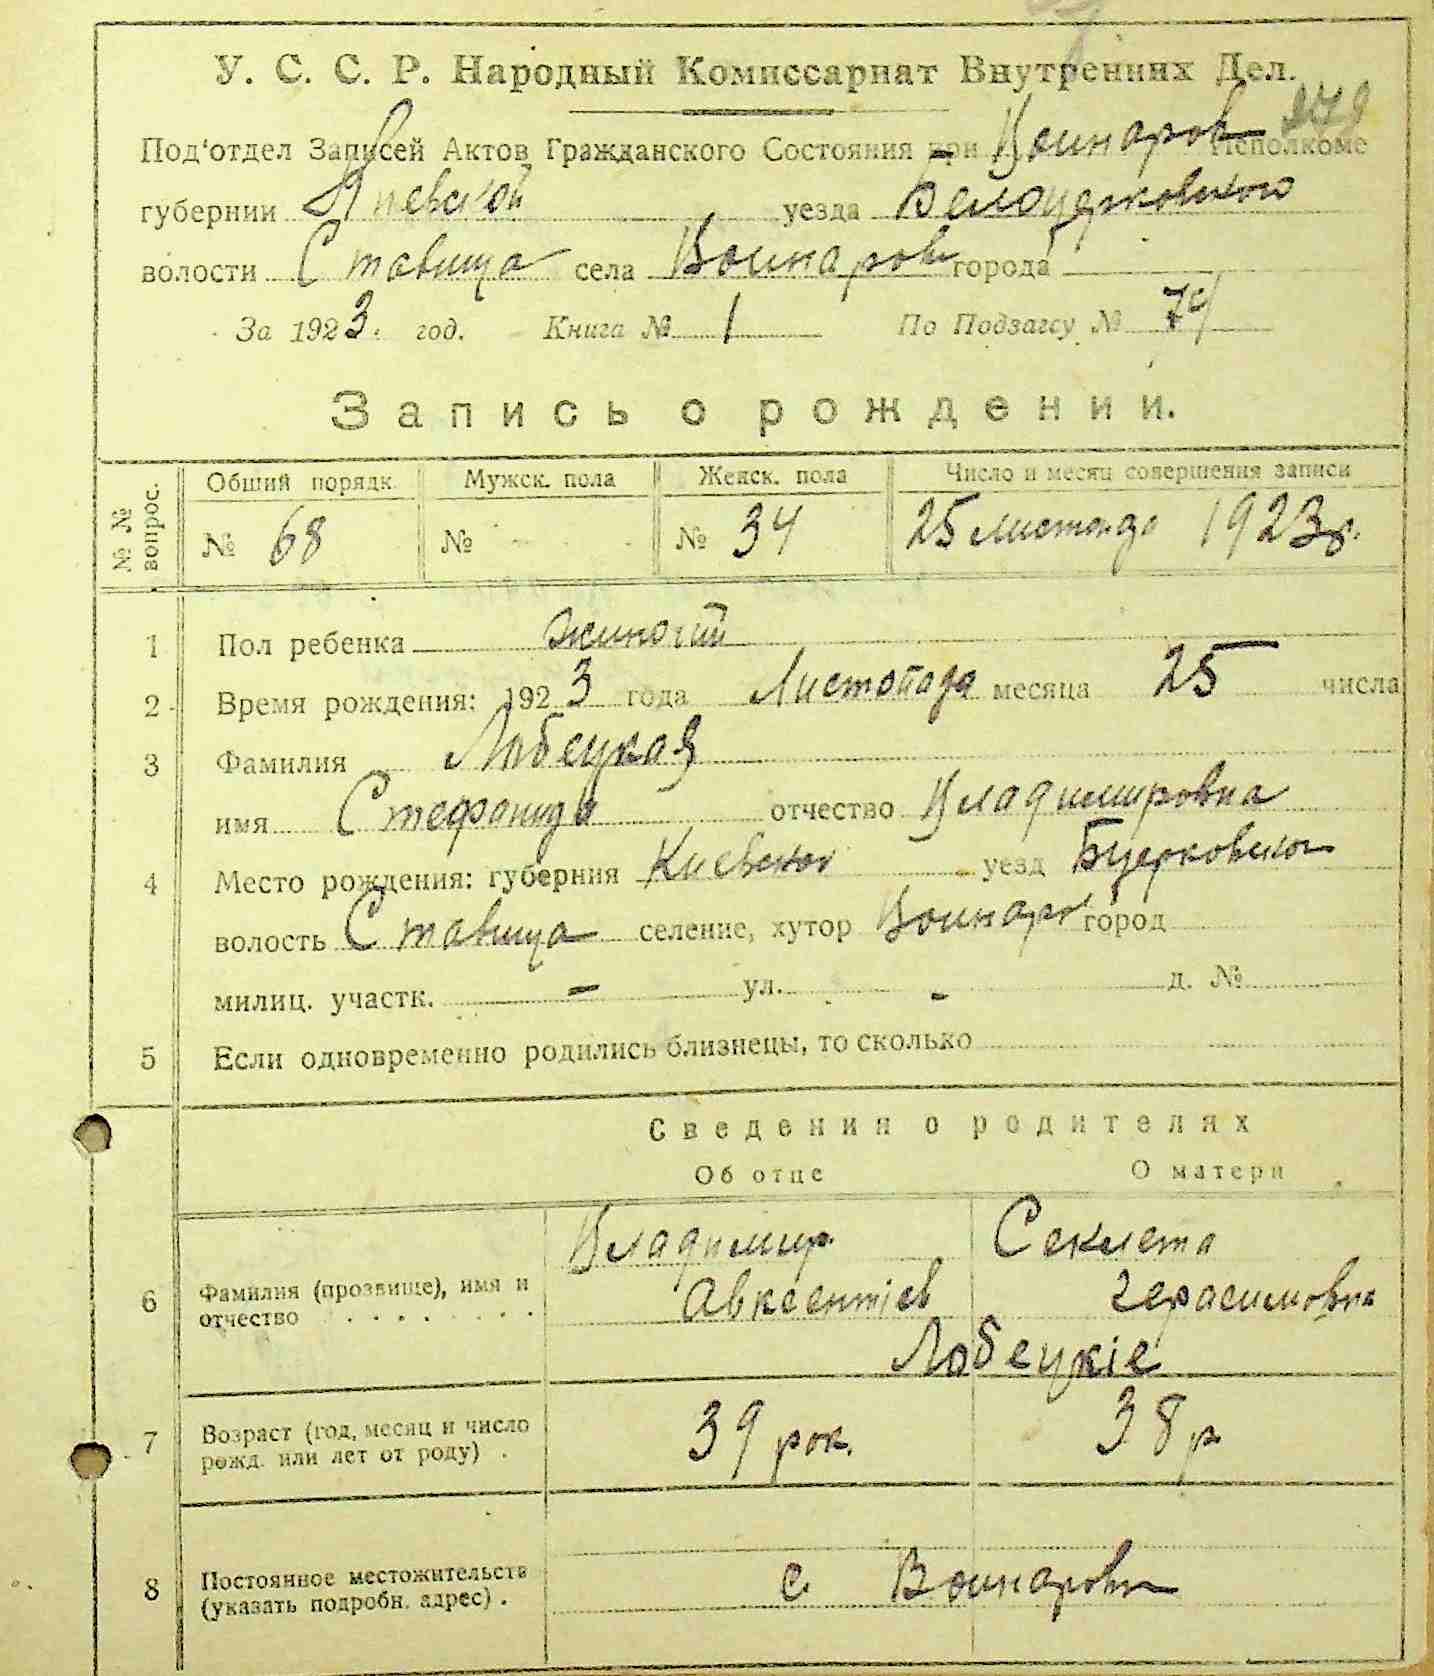 У. С. С. Р. Народный Комиссариат Внутренних Дел.
Под'отдел Записей Актов Гражданского Состояния при Исполкоме
губернии Киевской уезда Белоцерковского
волости Ставища села города
За 1923 год. Книга № 1 По Подзагсу № 74
Запись о рождении.
№ № вопрос.
Общий порядк. Мужск. пола Женск. пола Число и месяц совершения записи
№ 68 № № 34 25 1923 р.
1 Пол ребенка
2 Время рождения: 1923 года Листопада месяца 25 числа
3 Фамилия Лобецкая
имя Стефанида отчество Владимировна
4 Место рождения: губерния Киевской уезд
волость Ставища селение, хутор город
милиц. участк. - ул. - д. №
5 Если одновременно родились близнецы, то сколько
Сведения о родителях
Об отце О матери
6 Фамилия (прозвище), имя и отчество
Владимир Секлета
Авксентіев Герасимовна
Лобецкіе
7 Возраст (год, месяц и число рожд. или лет от роду) . 39 рок. 38 р
8 Постоянное местожительств (указать подробн. адрес) . с.